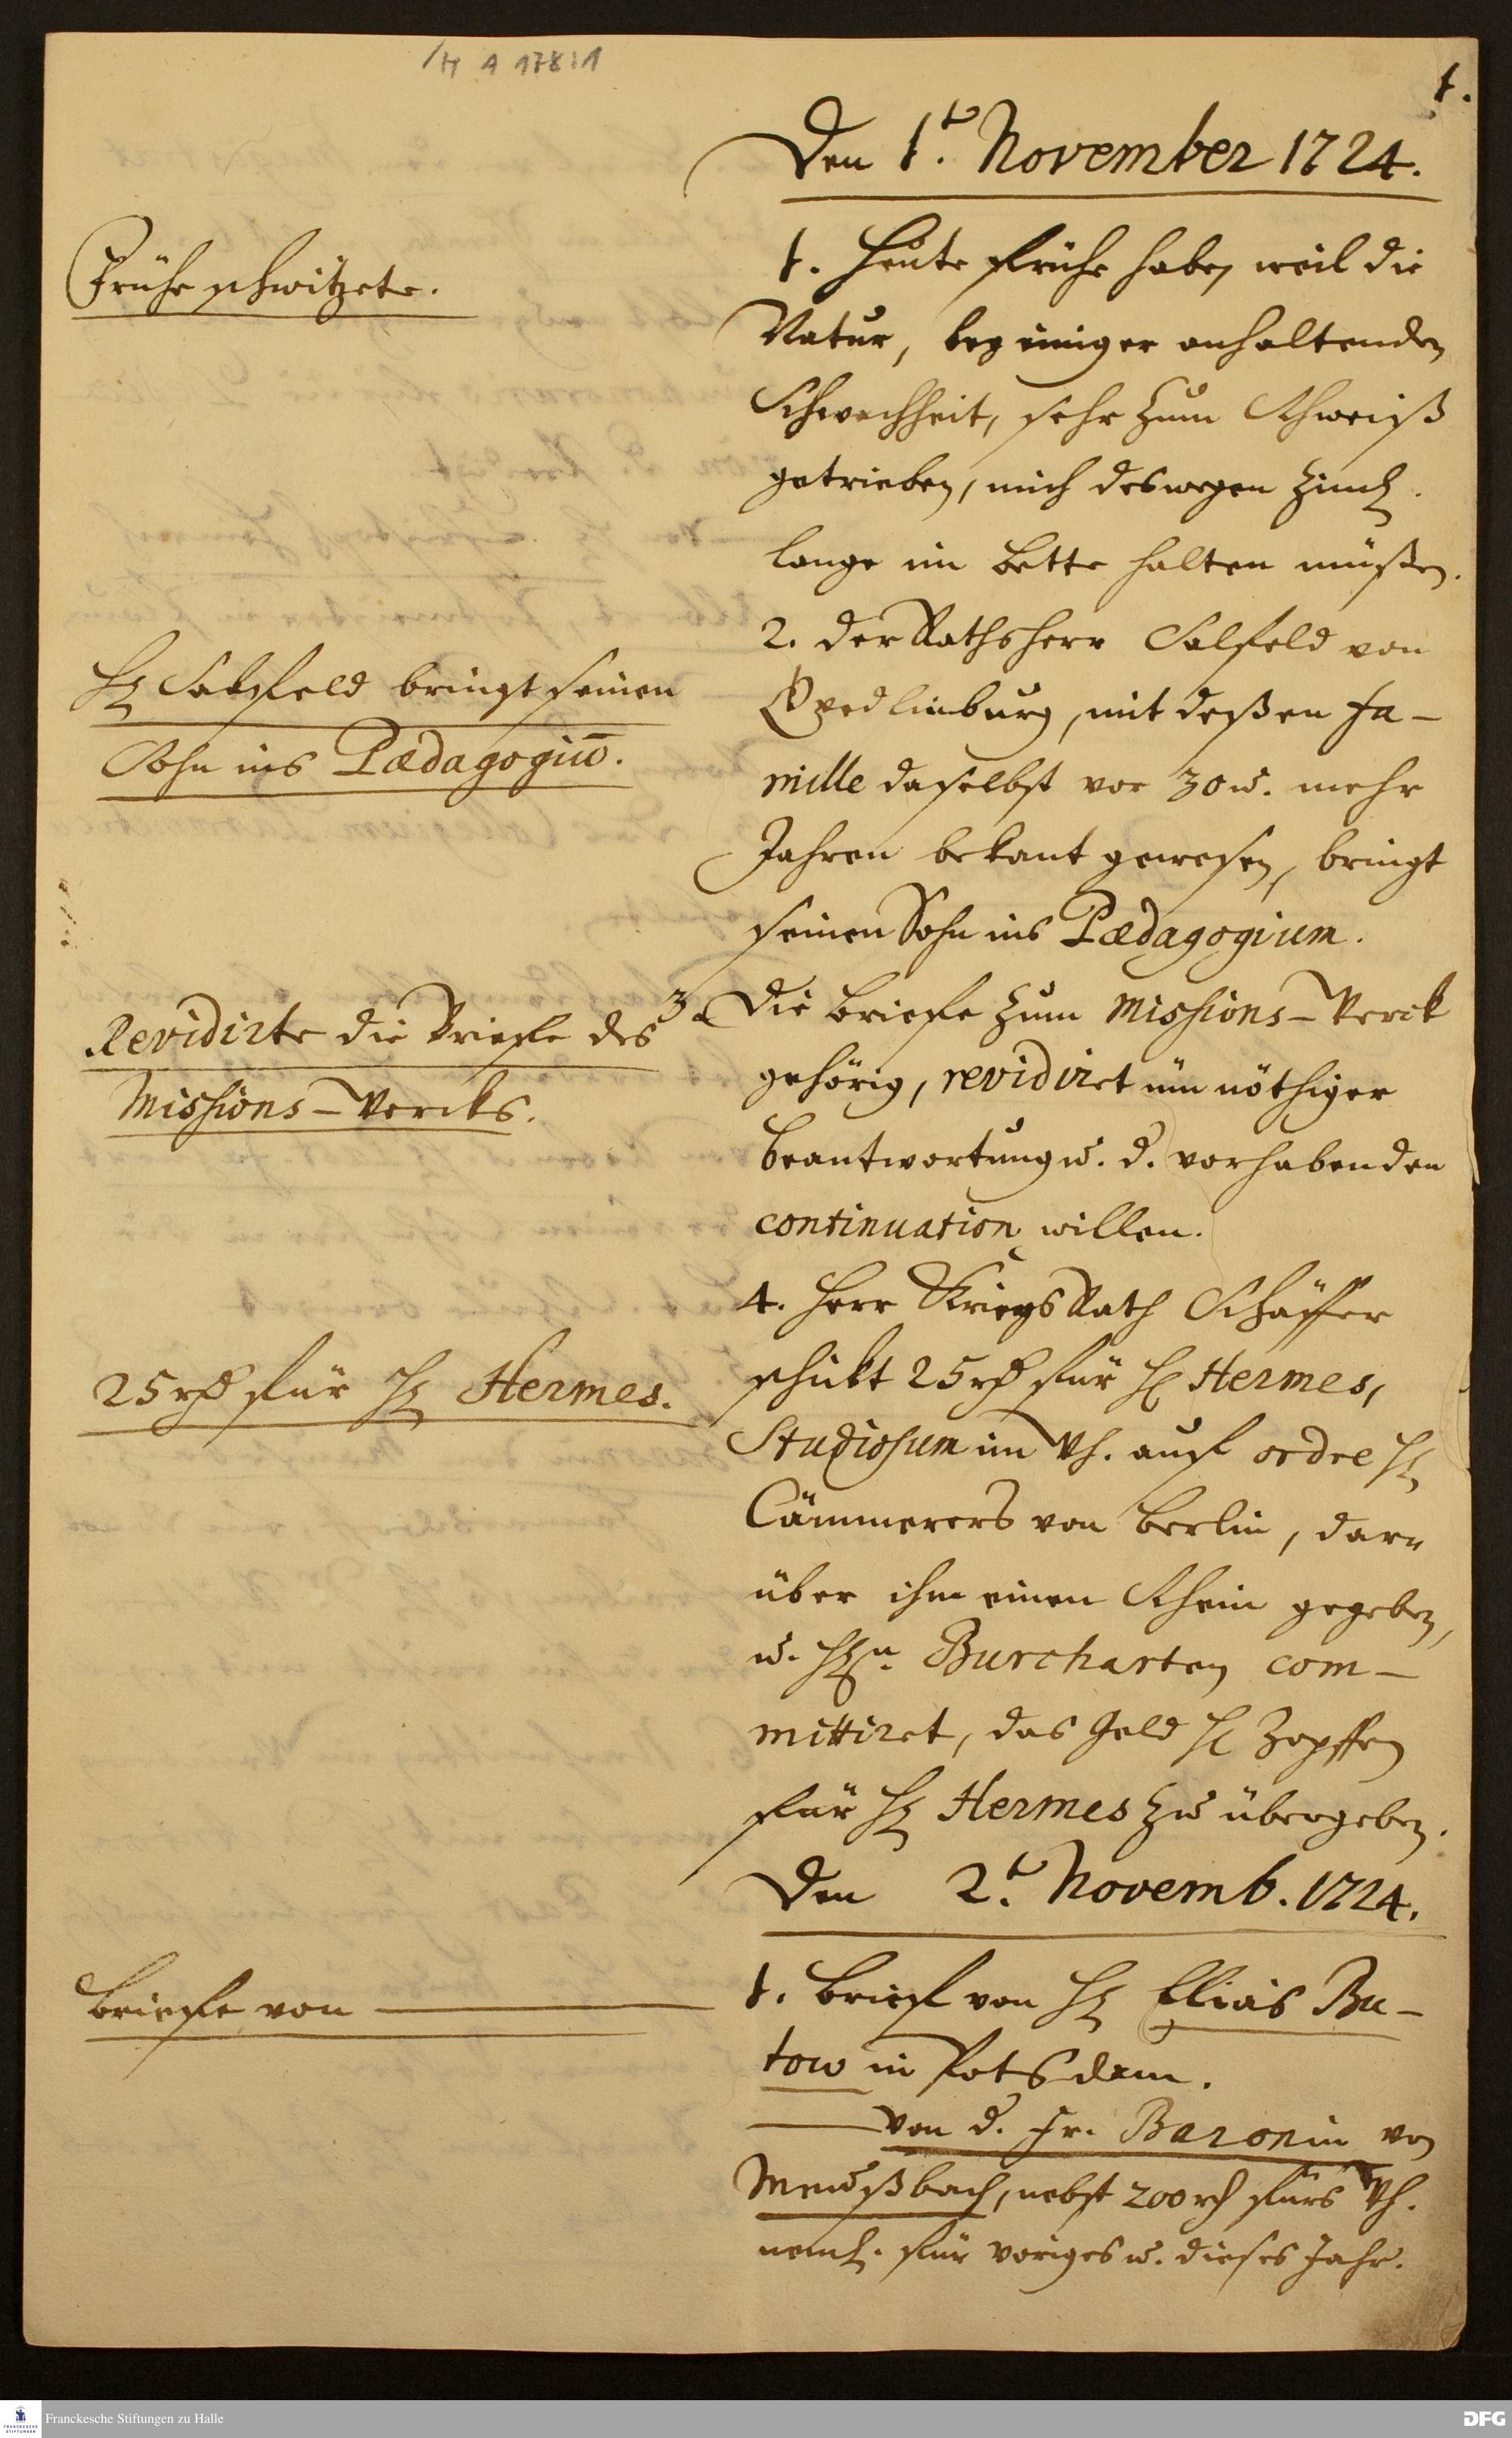 /H A 178:1
1.
Den 1.t November 1724.
Frühe schwitzete.
1. Heute frühe habe, weil die
Natur, bey einiger anhaltenden
Schwachheit, sehr zum Schweiß
getrieben, mich deswegen ziml.
lange im Bette halten müßen.
H. Salfeld bringt seinen
Sohn ins Pædagogiū.
2. der Rathsherr Salfeld von
Qvedlinburg, mit deßen Fa-
mille daselbst vor 30 u. mehr
Jahren bekant gewesen, bringt
seinen Sohn ins Pædagogium.
Revidirte die Briefe des
Missions-Wercks.
3. Die Briefe zum Missions-Werck
gehörig, revidiret üm nöthiger
Beantwortung u. d. vorhabenden
continuation willen.
25 rth für H. Hermes.
4. Herr KriegsRath Schäffer
schickt 25 rth für H. Hermes,
Studiosum im Wh. auf ordre H.
Cämmerers von Berlin, dar-
über ihm einen Schein gegeben,
u. H.n Burcharten com-
mittiret, das Geld H. Zopffen
für H. Hermes zu übergeben.
Den 2.t Novemb. 1724.
Briefe von
1. Brief von H. Elias Bu-
tow in Potsdam.
von d. Fr. Baronin von
Meusebach, nebst 200 rth fürs Wh.
neml. für voriges u. dieses Jahr.
Franckesche Stiftungen zu Halle
DFG